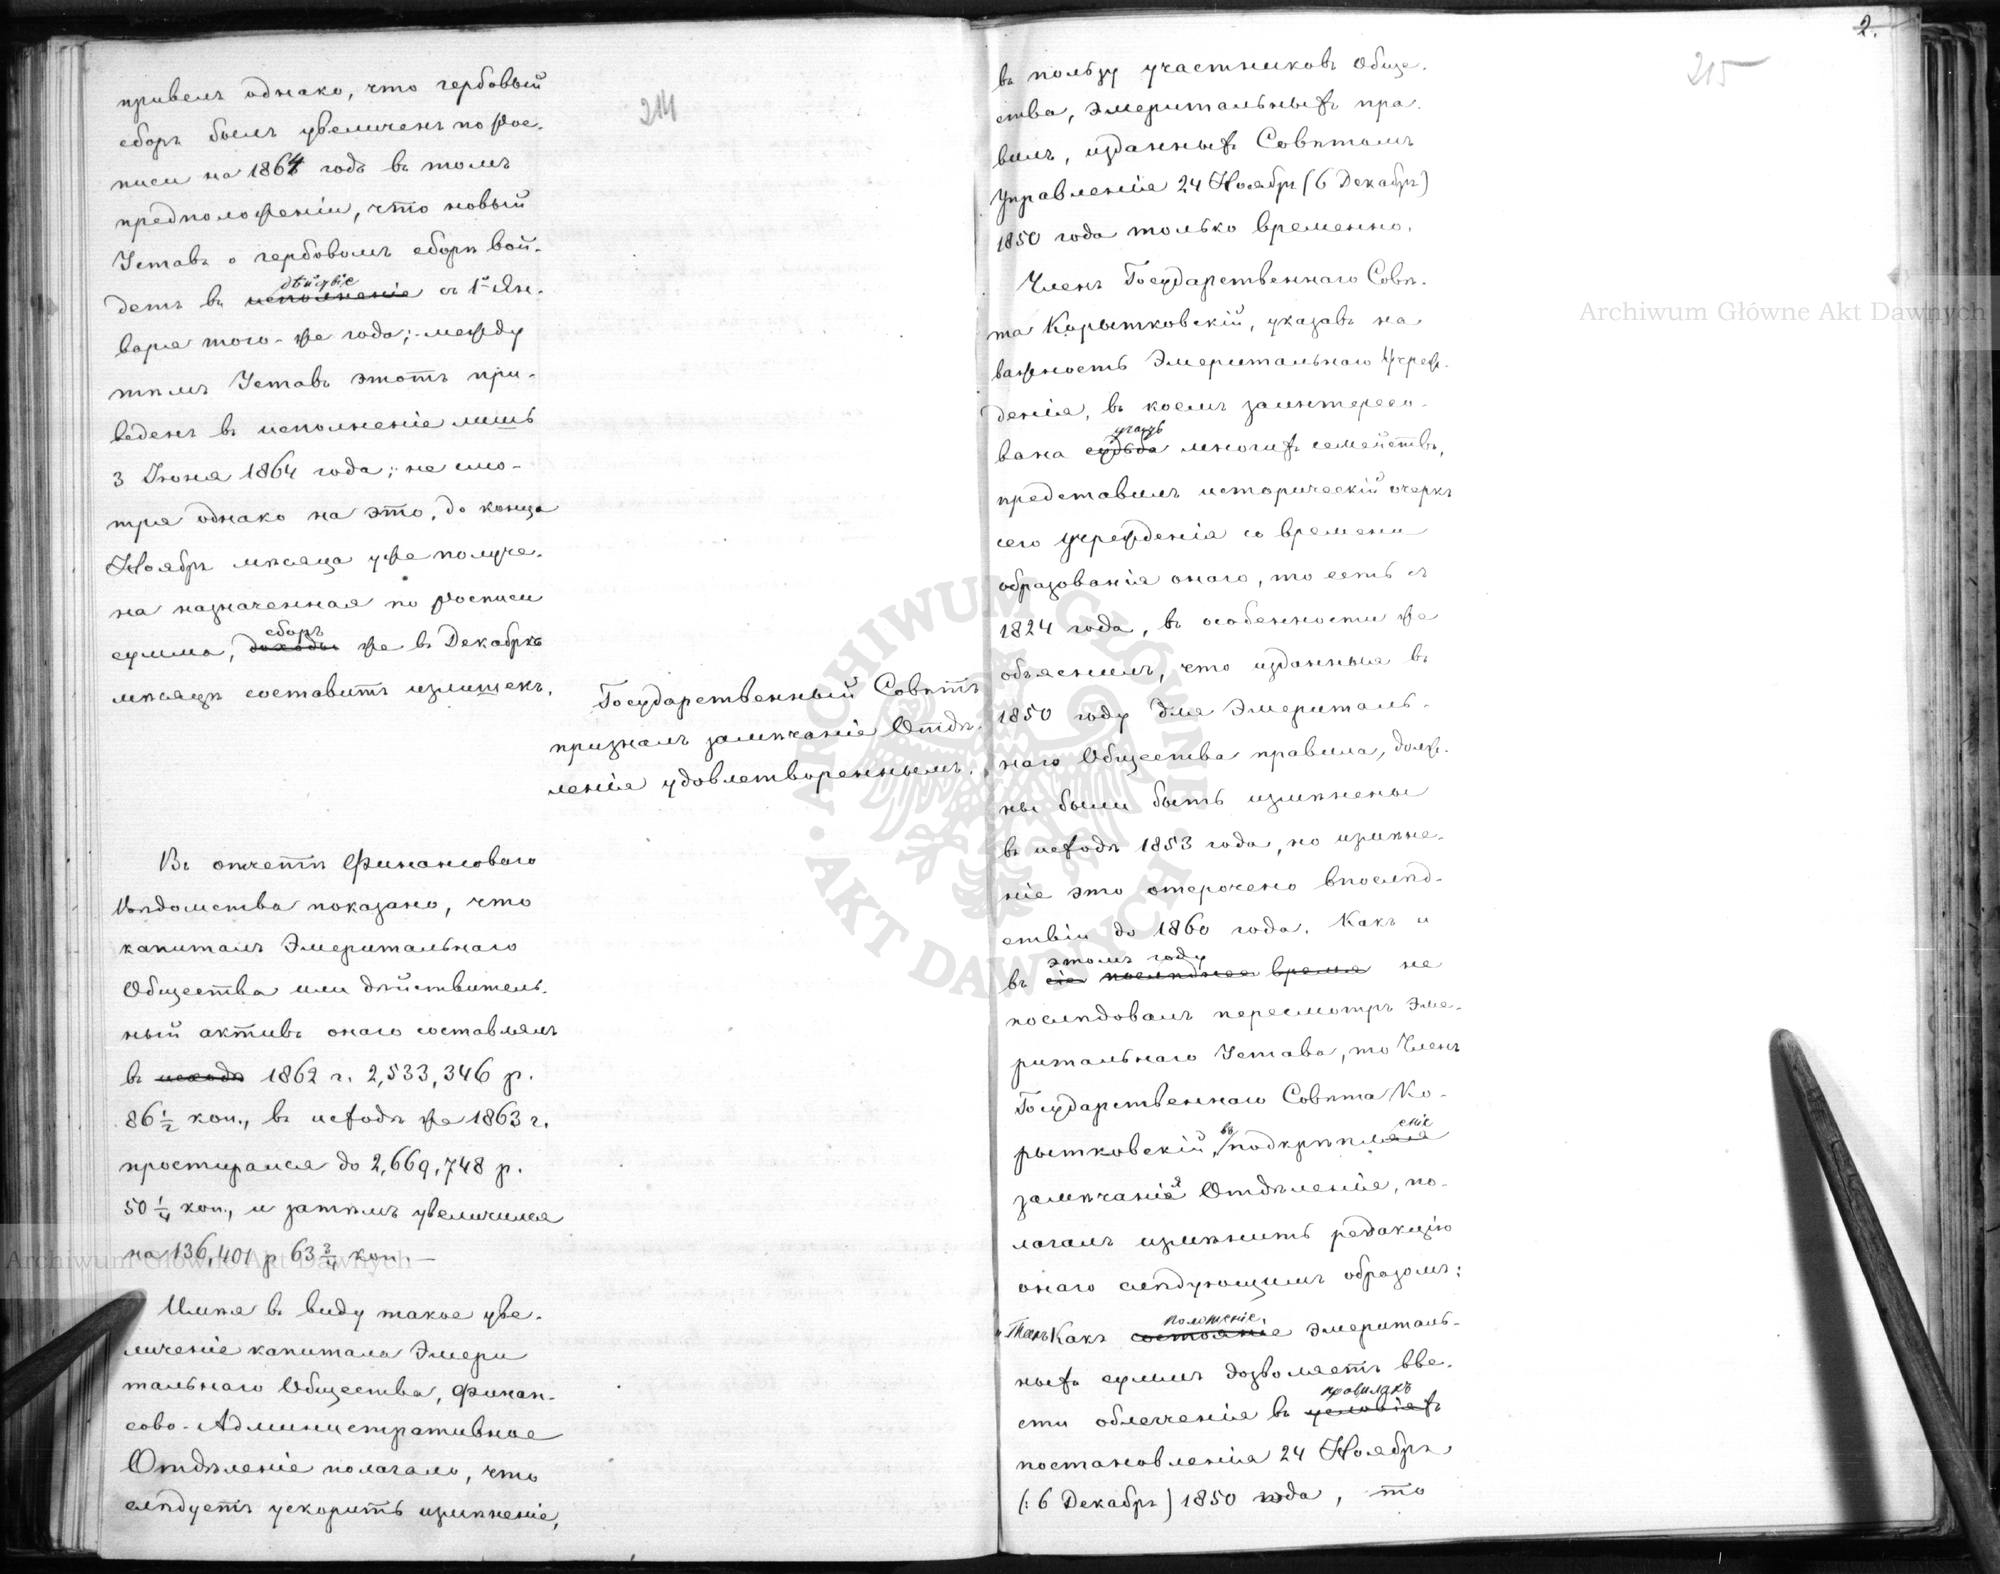 214
привелъ однако, что гербовый
сборъ былъ увеличенъ по рос-
писи на 1864 годъ въ томъ
предположеніи, что новый
Уставъ о гербовомъ сборѣ вой-
дѣйствіе
детъ въ исполненіе съ 1го Ян-
варя того-же года; между
тѣмъ Уставъ этотъ при-
веденъ въ исполненіе лишь
3 Іюня 1864 года; не смо-
тря однако на это, до конца
Ноября мѣсяца уже получе-
на назначенная по росписи
сборъ
сумма, доходы же въ Декабрѣ
мѣсяцѣ составитъ излишекъ.
Государственный Совѣтъ
призналъ замѣчаніе Отдѣ-
ленія удовлетвореннымъ.
Въ отчетѣ Финансоваго
Вѣдомства показано, что
капиталъ Эмеритальнаго
Общества или дѣйствитель-
ный активъ онаго составлялъ
въ исходѣ 1862 г. 2,533,346 р.
86 1/2 коп., въ исходѣ же 1863 г.
простирался до 2,669,748 р.
50 1/4 коп., и затѣмъ увеличился
на 136,401 р 63 3/4 коп. —
Имѣя въ виду такое уве-
личеніе капитала Эмери
тальнаго Общества, Финан-
сово-Административное
Отдѣленіе полагало, что
слѣдуетъ ускорить измѣненіе,
2.
215
въ пользу участниковъ Обще-
ства, Эмеритальныхъ пра-
вилъ, изданныхъ Совѣтомъ
Управленія 24 Ноября (6 Декабря)
1850 года только временно.
Членъ Государственнаго Совѣ-
та Корытковскій, указавъ на
важность Эмеритальнаго Учреж-
денія, въ коемъ заинтересо-
участь
вана судьба многихъ семействъ,
представилъ историческій очеркъ
сего Учрежденія со времени
образованія онаго, то есть съ
1824 года, въ особенности же
объяснилъ, что изданныя въ
1850 году для Эмериталь-
наго Общества правила, долж-
ны были быть измѣнены
въ исходѣ 1853 года, но измѣне-
ніе это отсрочено впослѣд-
ствіи до 1860 года. Какъ и
этомъ году
въ сіе послѣднее время не
послѣдовалъ пересмотръ Эме-
ритальнаго Устава, то Членъ
Государственнаго Совѣта Ко-
въ еніе
рытковскій, подкрѣпляя
замѣчанія Отдѣленія, по-
лагалъ измѣнить редакцію
онаго слѣдующимъ образомъ:
положеніе
"Такъ Какъ состояніе Эмериталь-
ныхъ суммъ дозволяетъ вве-
правилахъ
сти облегченія въ условіяхъ
постановленія 24 Ноября
(: 6 Декабря) 1850 года, то
Archiwum Główne Akt Dawnych
Archiwum Główne Akt Dawnych
ARCHIWUM GŁÓWNE AKT DAWNYCH